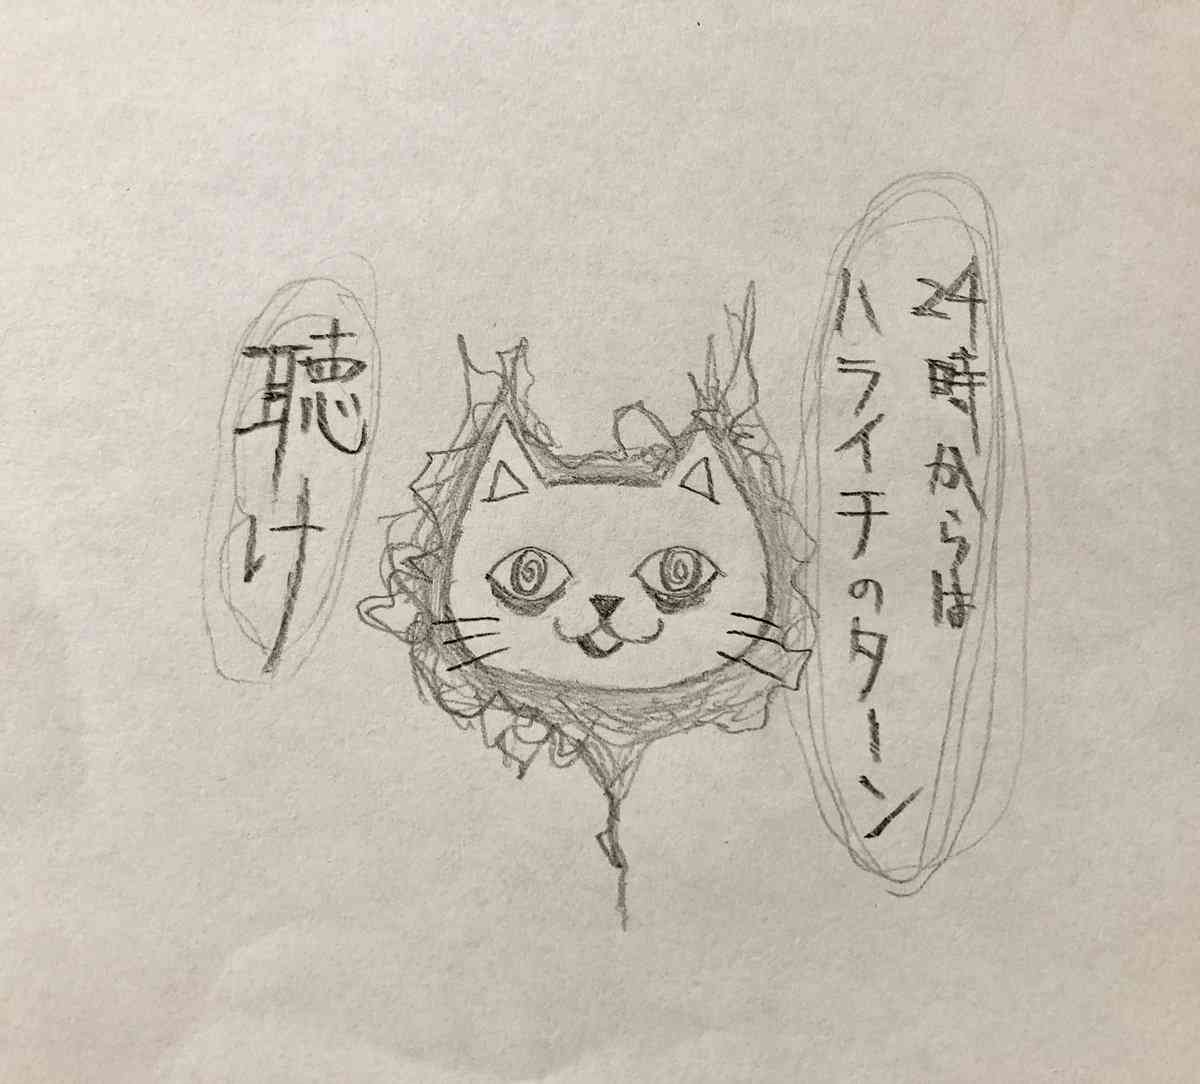 24時からは
ハライチのターン
聴け